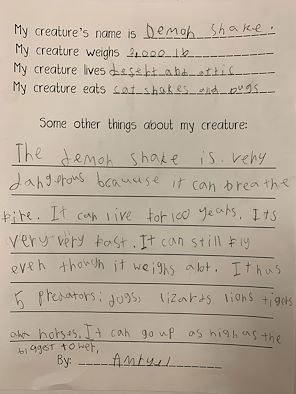 My creature's name is Demon shake.
My creature weighs 2,000 lb
My creature lives desert and attic
My creature eats cat snakes and bugs
Some other things about my creature:
The demon shake is very
dangerous because it can breathe
fire. It can live for 100 years. Its
very very fast. It can still fly
even though it weighs alot. It has
5 predators: dogs, lizards lions tigers
and horses. It can go up as high as the
biggest tower.
By: